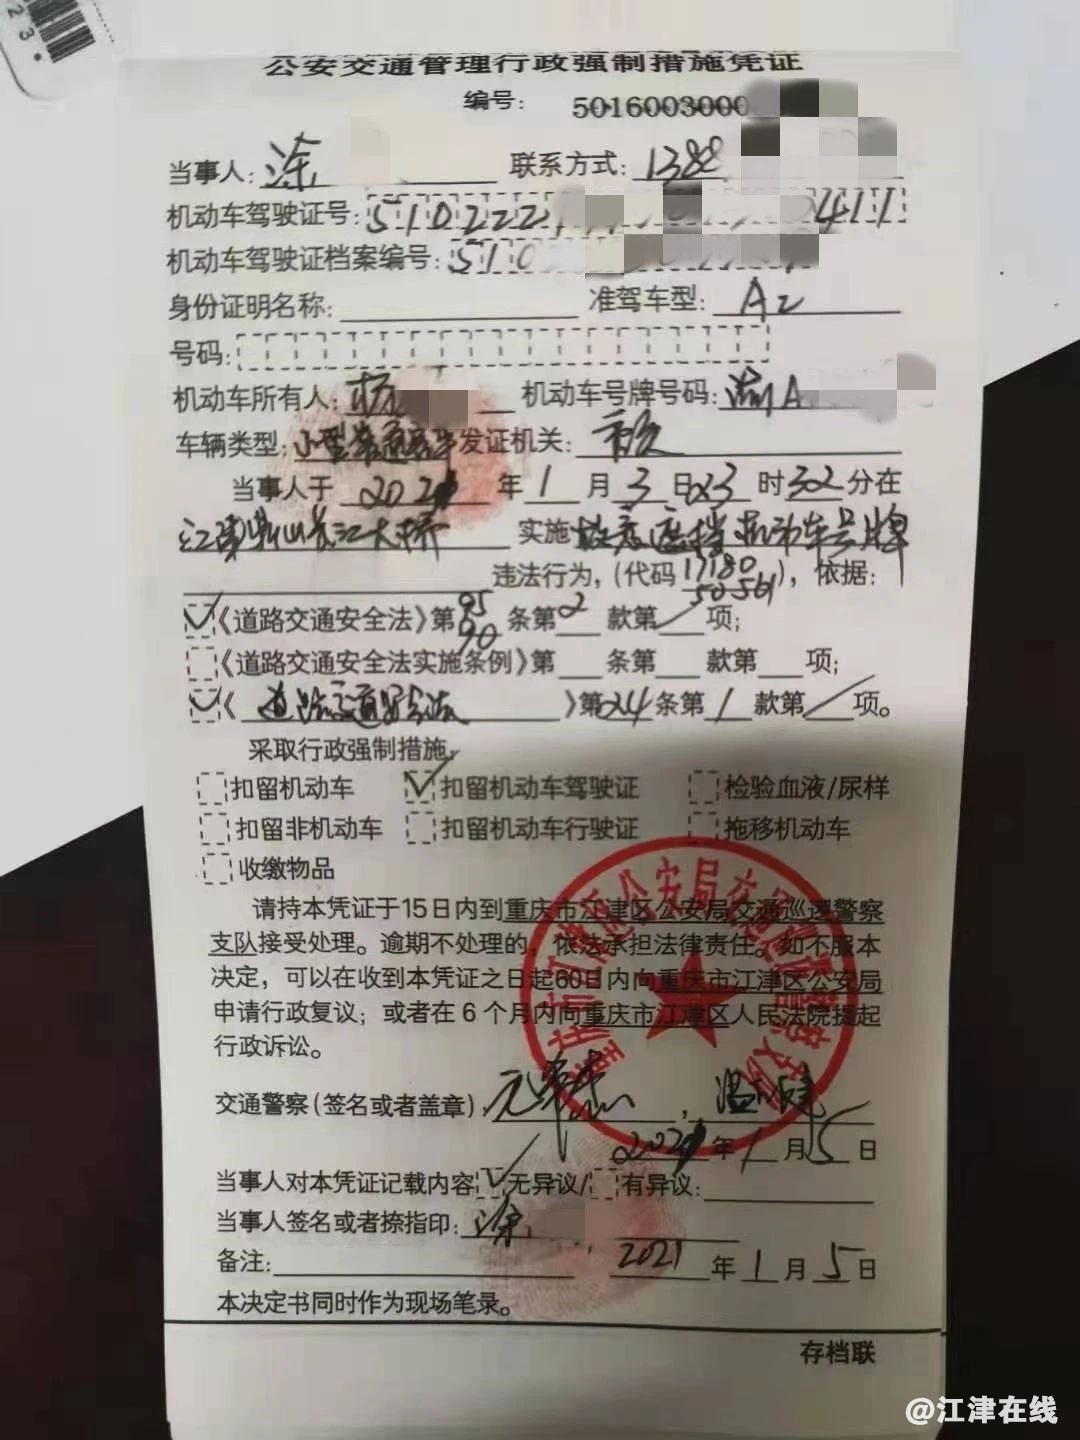 23.
公安交通管理行政强制措施凭证
编号: 5016003000
当事人: 涂 联系方式: 1388
机动车驾驶证号: 510222 0411
机动车驾驶证档案编号: 510
身份证明名称: 准驾车型: A2
号码:
机动车所有人: 杨 机动车号牌号码: 渝A
车辆类型: 小型普通客车 发证机关:
当事人于 2021 年 1 月 3 日 23 时 32 分在
江津 长江大桥 实施 故意遮挡机动车号牌
违法行为,(代码 17180 50561), 依据:
《道路交通安全法》第 95 90 条第 2 款第 / 项;
《道路交通安全法实施条例》第 条第 款第 项;
《道路交通安全法》第 24 条第 1 款第 / 项。
采取行政强制措施:
扣留机动车 扣留机动车驾驶证 检验血液/尿样
扣留非机动车 扣留机动车行驶证 拖移机动车
收缴物品
请持本凭证于15日内到重庆市江津区公安局交通巡逻警察
支队接受处理。逾期不处理的,依法承担法律责任。如不服本
决定,可以在收到本凭证之日起60日内向重庆市江津区公安局
申请行政复议;或者在6个月内向重庆市江津区人民法院提起
行政诉讼。
交通警察(签名或者盖章):
2021 年 1 月 5 日
当事人对本凭证记载内容 无异议/ 有异议:
当事人签名或者捺指印: 涂
备注: 2021 年 1 月 5 日
本决定书同时作为现场笔录。
存档联
@江津在线